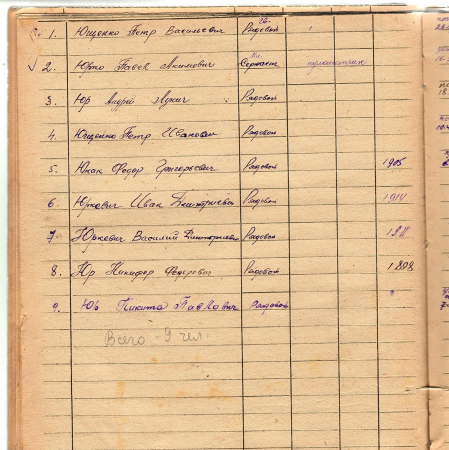 1. Ющенко Петр Васильевич гв. Рядовой
2. Юрко Павел Акимович Сержант пулеметчик
3. Юр Андрей Лукич Рядовой
4. Ющенко Петр Иванович Рядовой
5. Юнак Федор Григорьевич Рядовой 1905
6. Юркевич Иван Дмитриевич Рядовой 1914
7. Юркевич Василий Дмитриевич Рядовой 1911
8. Юр Никифор Федорович Рядовой 1898
9. Юр Никита Павлович Рядовой
Всего - 9 чел.